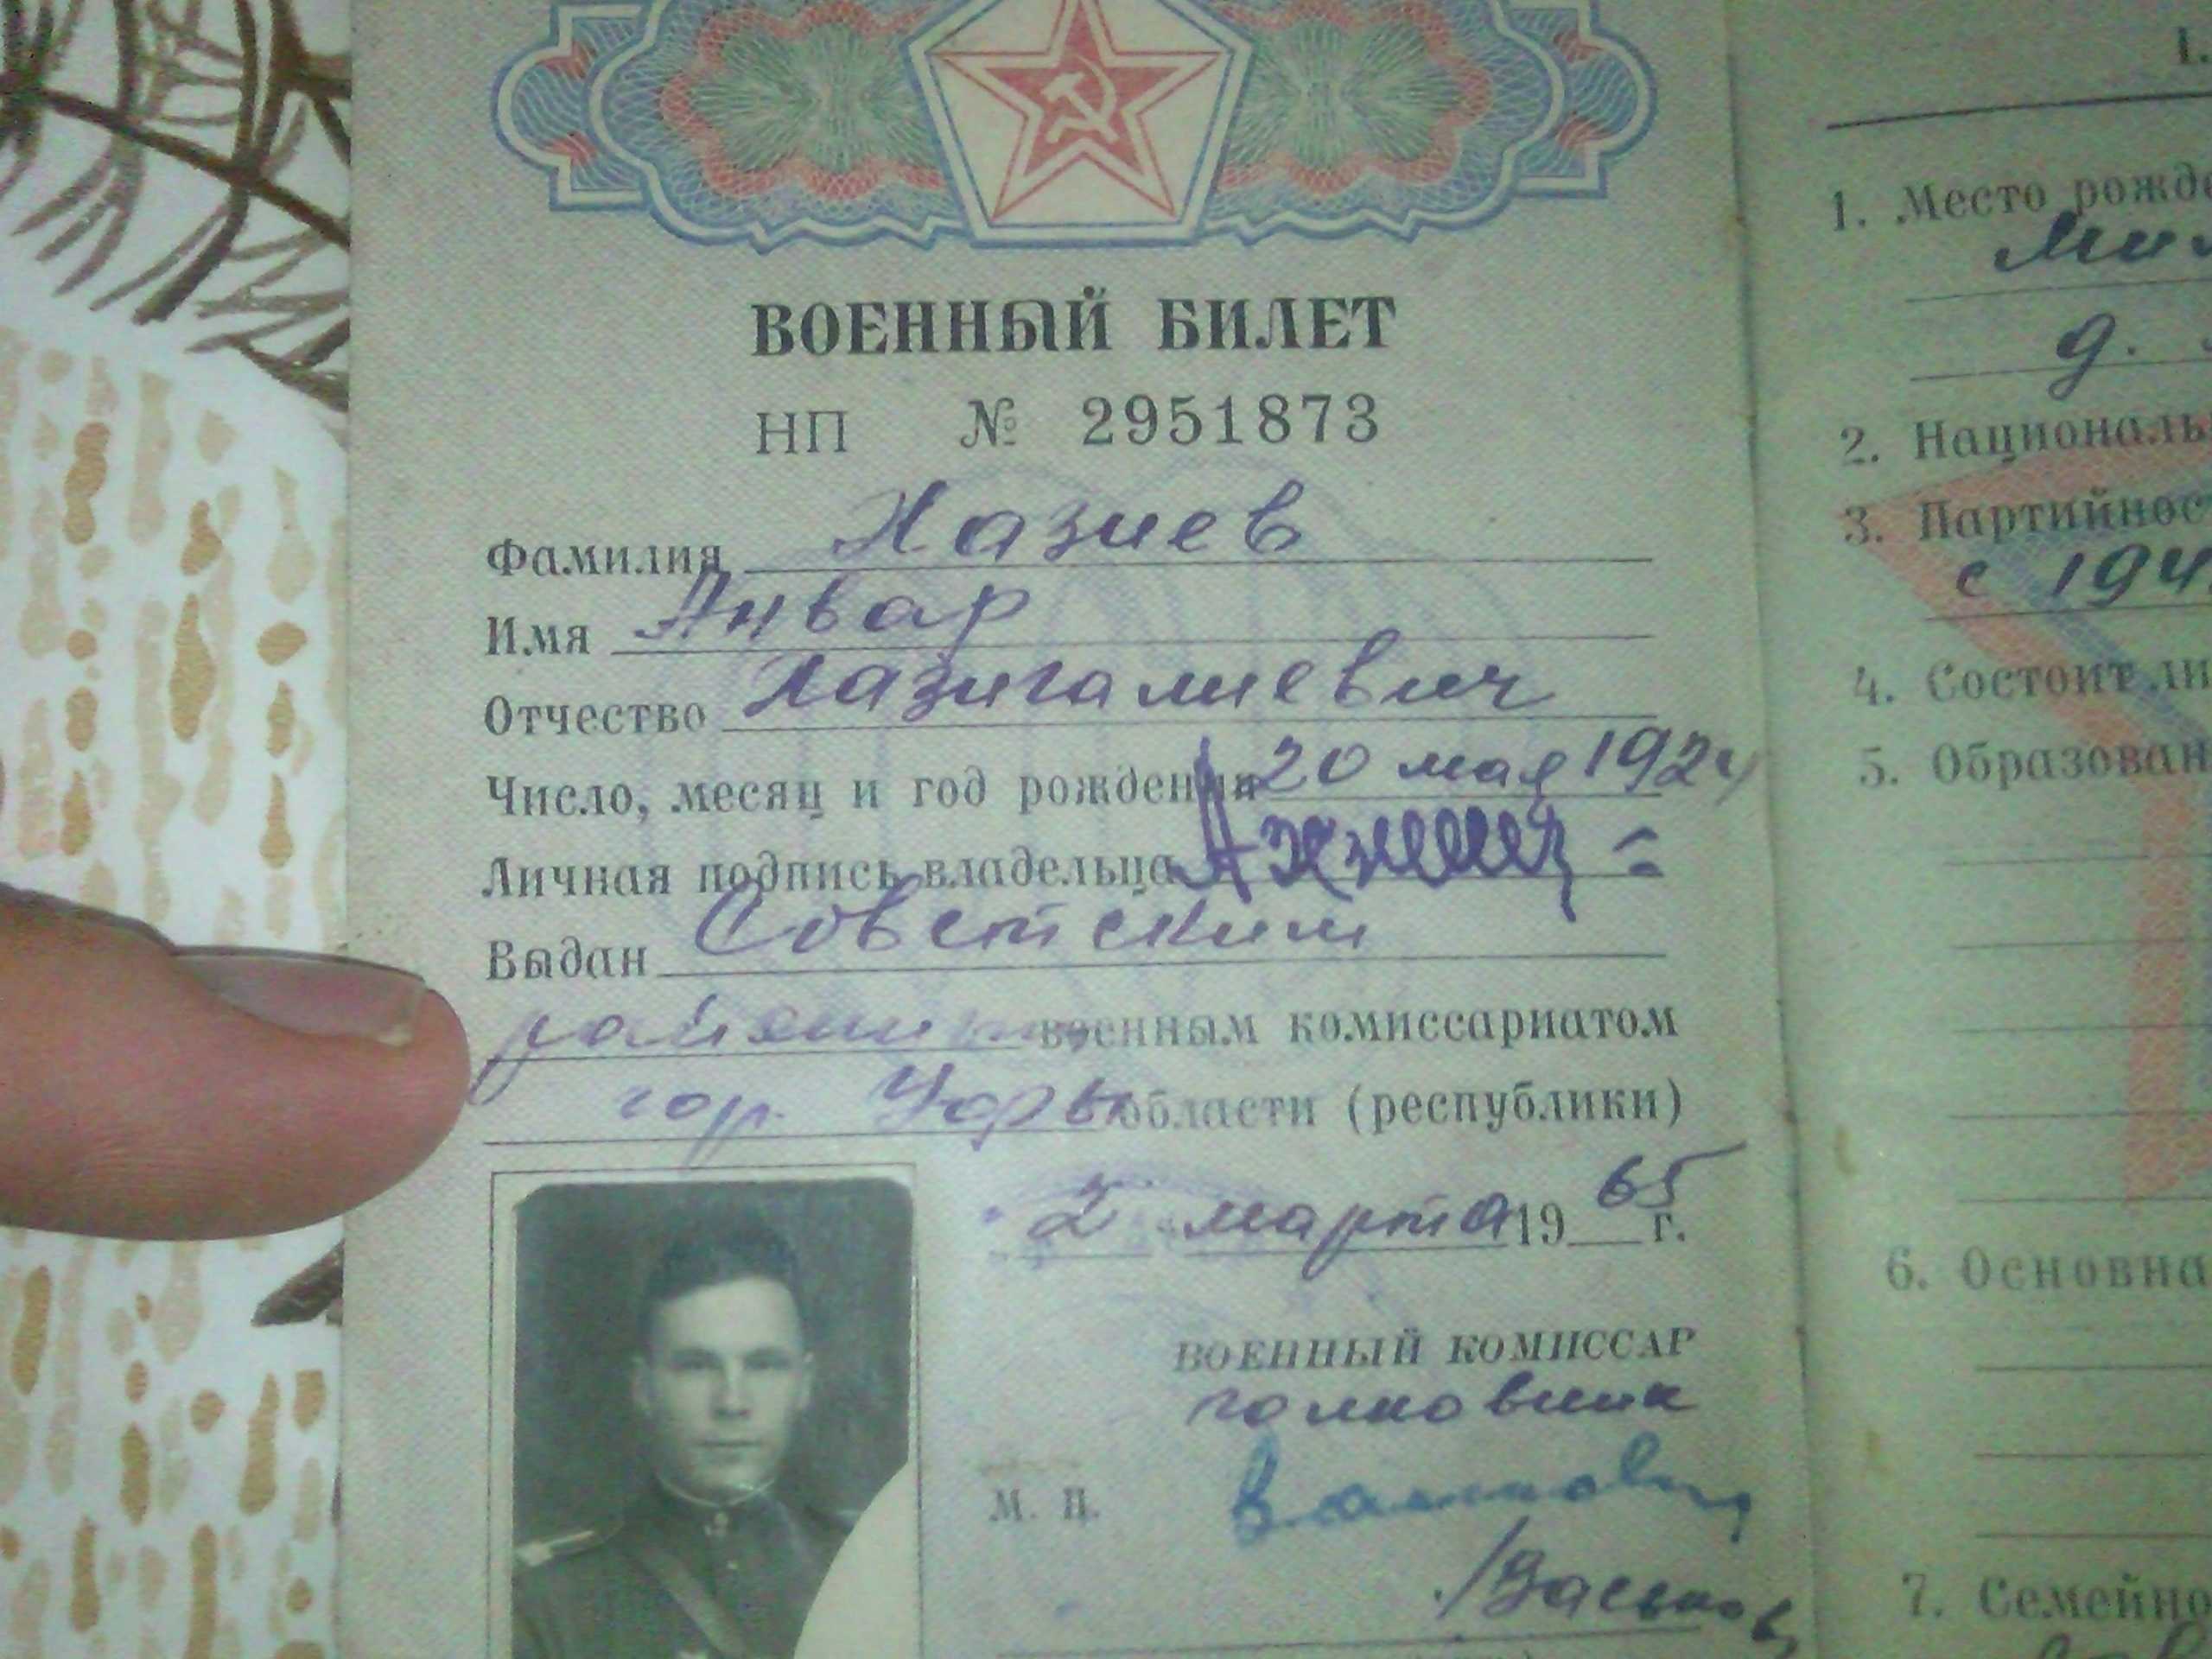 ВОЕННЫЙ БИЛЕТ
НП № 2951873
Фамилия Хазиев
Имя Анвар
Отчество Хазигалиевич
Число, месяц и год рождения 20 мая 1924
Личная подпись владельца
Выдан Советским
районным военным комиссариатом
гор. Уфы области (республики)
2 марта 1965 г.
ВОЕННЫЙ КОМИССАР
полковник
М. П.
I.
1. Место рожде
Ми
д.
2. Националь
3. Партийнос
с 194
4. Состоит ли
5. Образован
6. Основна
7. Семейно